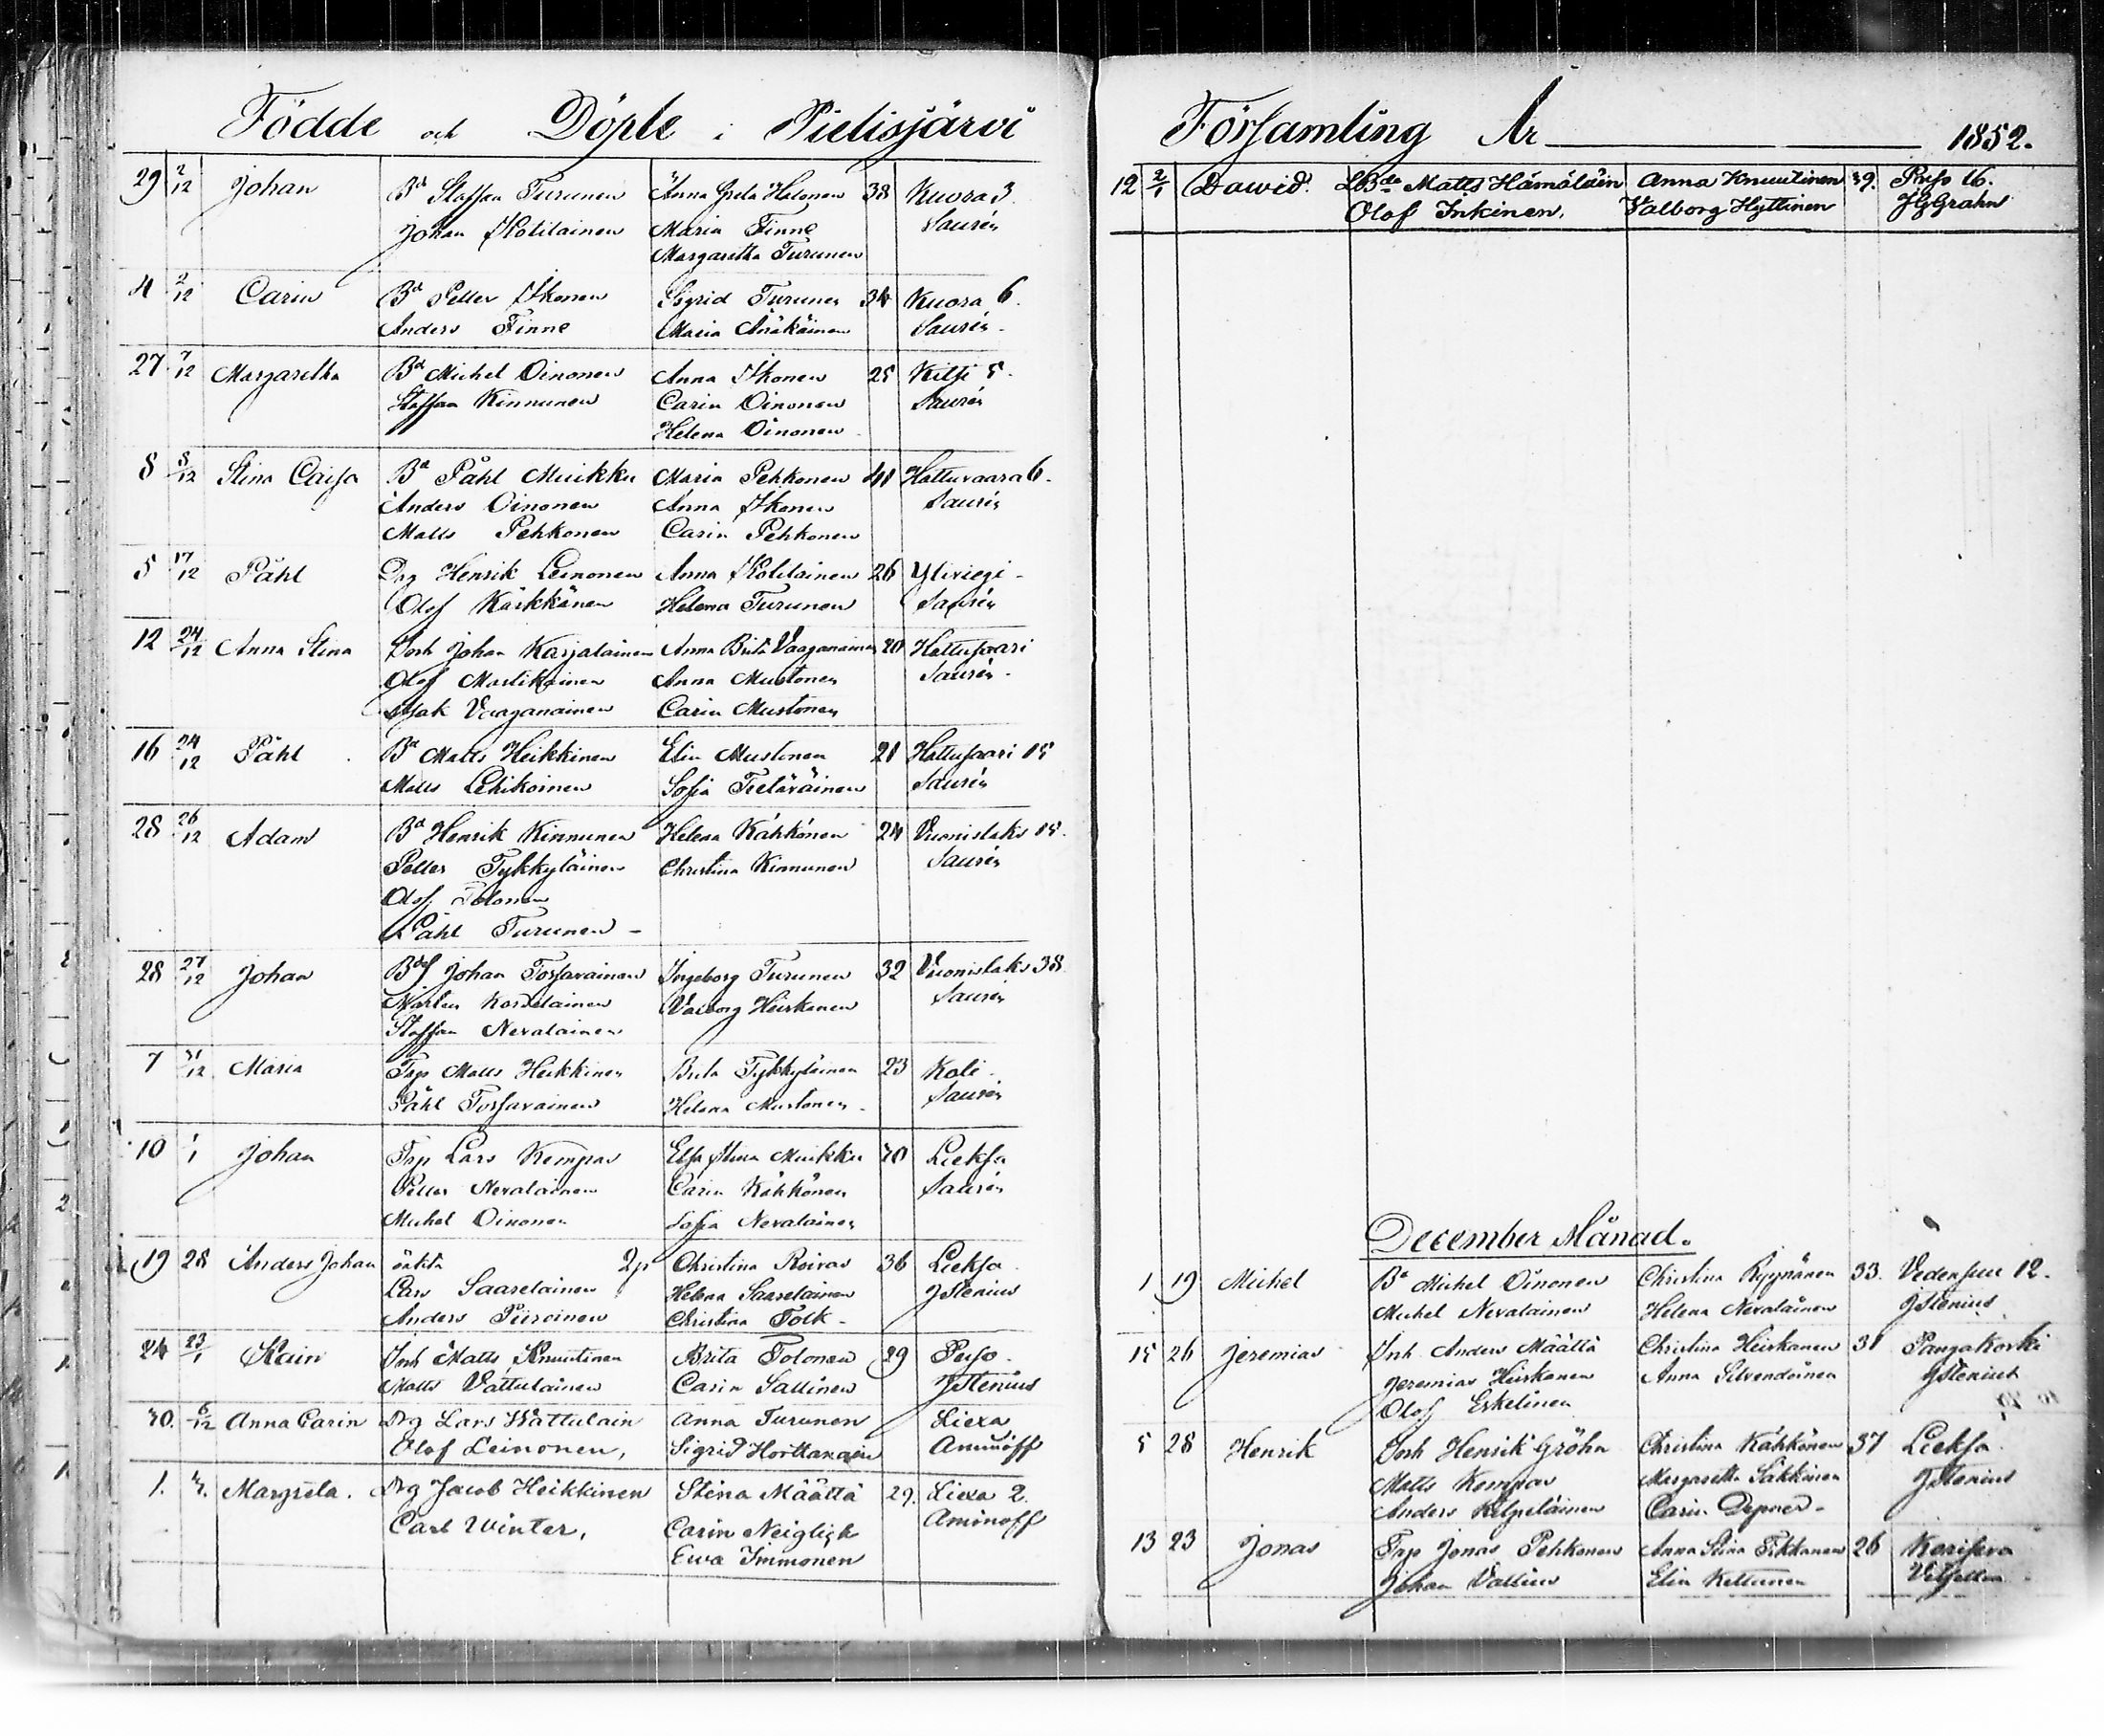 Födde och Döpte i Pielisjärvi
29 2/12 Johan Bd Staffan Turunen Anna Greta Halonen 38 Kuora 3.
Johan Kolilainen Maria Finne Saurén
Margaretha Turunen
4 2/12 Carin Bd Petter Ikonen Sigrid Turunen 34 Kuora 6.
Anders Finne Maria Saurén
27 7/12 Margaretha Bd Michel Oinonen Anna Ikonen 25 Kitsi 5.
Staffan Kinnunen Carin Oinonen Saurén
Helena Oinonen
8 8/12 Stina Caisa Bd Påhl Muikku Maria Pehkonen 41 Hattuvaara 6.
Anders Oinonen Anna Ikonen Saurén
Matts Pehkonen Carin Pehkonen
5 17/12 Påhl Drg Henrik Leinonen Anna Kolilainen 26
Olof Kärkkänen Helena Turunen Saurén
12 24/12 Anna Stina Inh Johan Karjalainen Anna Brita Vaaganainen 20 Hattusaari
Olof Martikainen Anna Mustonen Saurén
Isak Vaaganainen Carin Mustonen
16 24/12 Påhl Bd Matts Heikkinen Elin Mustonen 21 Hattusaari 15
Matts Lehikoinen Sofia Tieläväinen Saurén
28 26/12 Adam Bd Henrik Kinnunen Helena Kähkönen 24 Vuonislaks 15.
Petter Tykkyläinen Christina Kinnunen Saurén
Olof Tolonen
Påhl Turunen
28 27/12 Johan Johan Torfvainen Ingeborg Turunen 32 Vuonislaks 38.
Mårten Korvelainen Valborg Heiskanen Saurén
Staffan Nevalainen
7 31/12 Maria Torp Matts Heikkinen Brita Tykkyläinen 23 Koli
Påhl Torfvainen Helena Mustonen Saurén
10 1/1 Johan Torp Lars Kempas Elsa Stina Muikku 20 Lieksa
Petter Nevalainen Carin Kähkönen Saurén
Michel Oinonen Sofia Nevalainen
19 28 Anders Johan oäkta 2p Christina Roivas 36 Lieksa
Lars Saarelainen Helena Saarelainen JStenius
Anders Piiroinen Christina Tolk
24 23/1 Kain Inh Matts Knuutinen Brita Tolonen 29
Matts Vattulainen Carin Sallinen JStenius
30. 6/12 Anna Carin Drg Lars Wattulain Anna Turunen Liexa
Olof Leinonen, Sigrid Horttanain Aminoff
1. 4. Margreta. Drg Jacob Heikkinen Stina Määttä 29. Liexa 2.
Carl Winter, Carin Neigligk Aminoff
Ewa Immonen
Församling År 1852.
12 2/1 Dawid. Matts Hämäläin Anna Knuutinen 39. 16.
Olof Inkinen, Valborg Hyttinen JGGrahn
December Månad.
1 19 Michel Bd Michel Oinonen Christina Ryynänen 33. 12.
Michel Nevalainen Helena Nevalainen JStenius
15 26 Jeremias Inh Anders Määttä Christina Heiskanen 31 Pangakoski
Jeremias Heiskanen Anna Silvendoinen JStenius
Olof Eskelinen
5 28 Henrik Inh Henrik Gröhn Christina Kähkönen 37 Lieksa
Matts Kempas Margaretha Säkkinen JStenius
Anders Kilpeläinen Carin Depner
13 23 Jonas Torp Jonas Pehkonen Anna Stina Tikkanen 26
Johan Vallius Elin Kettunen